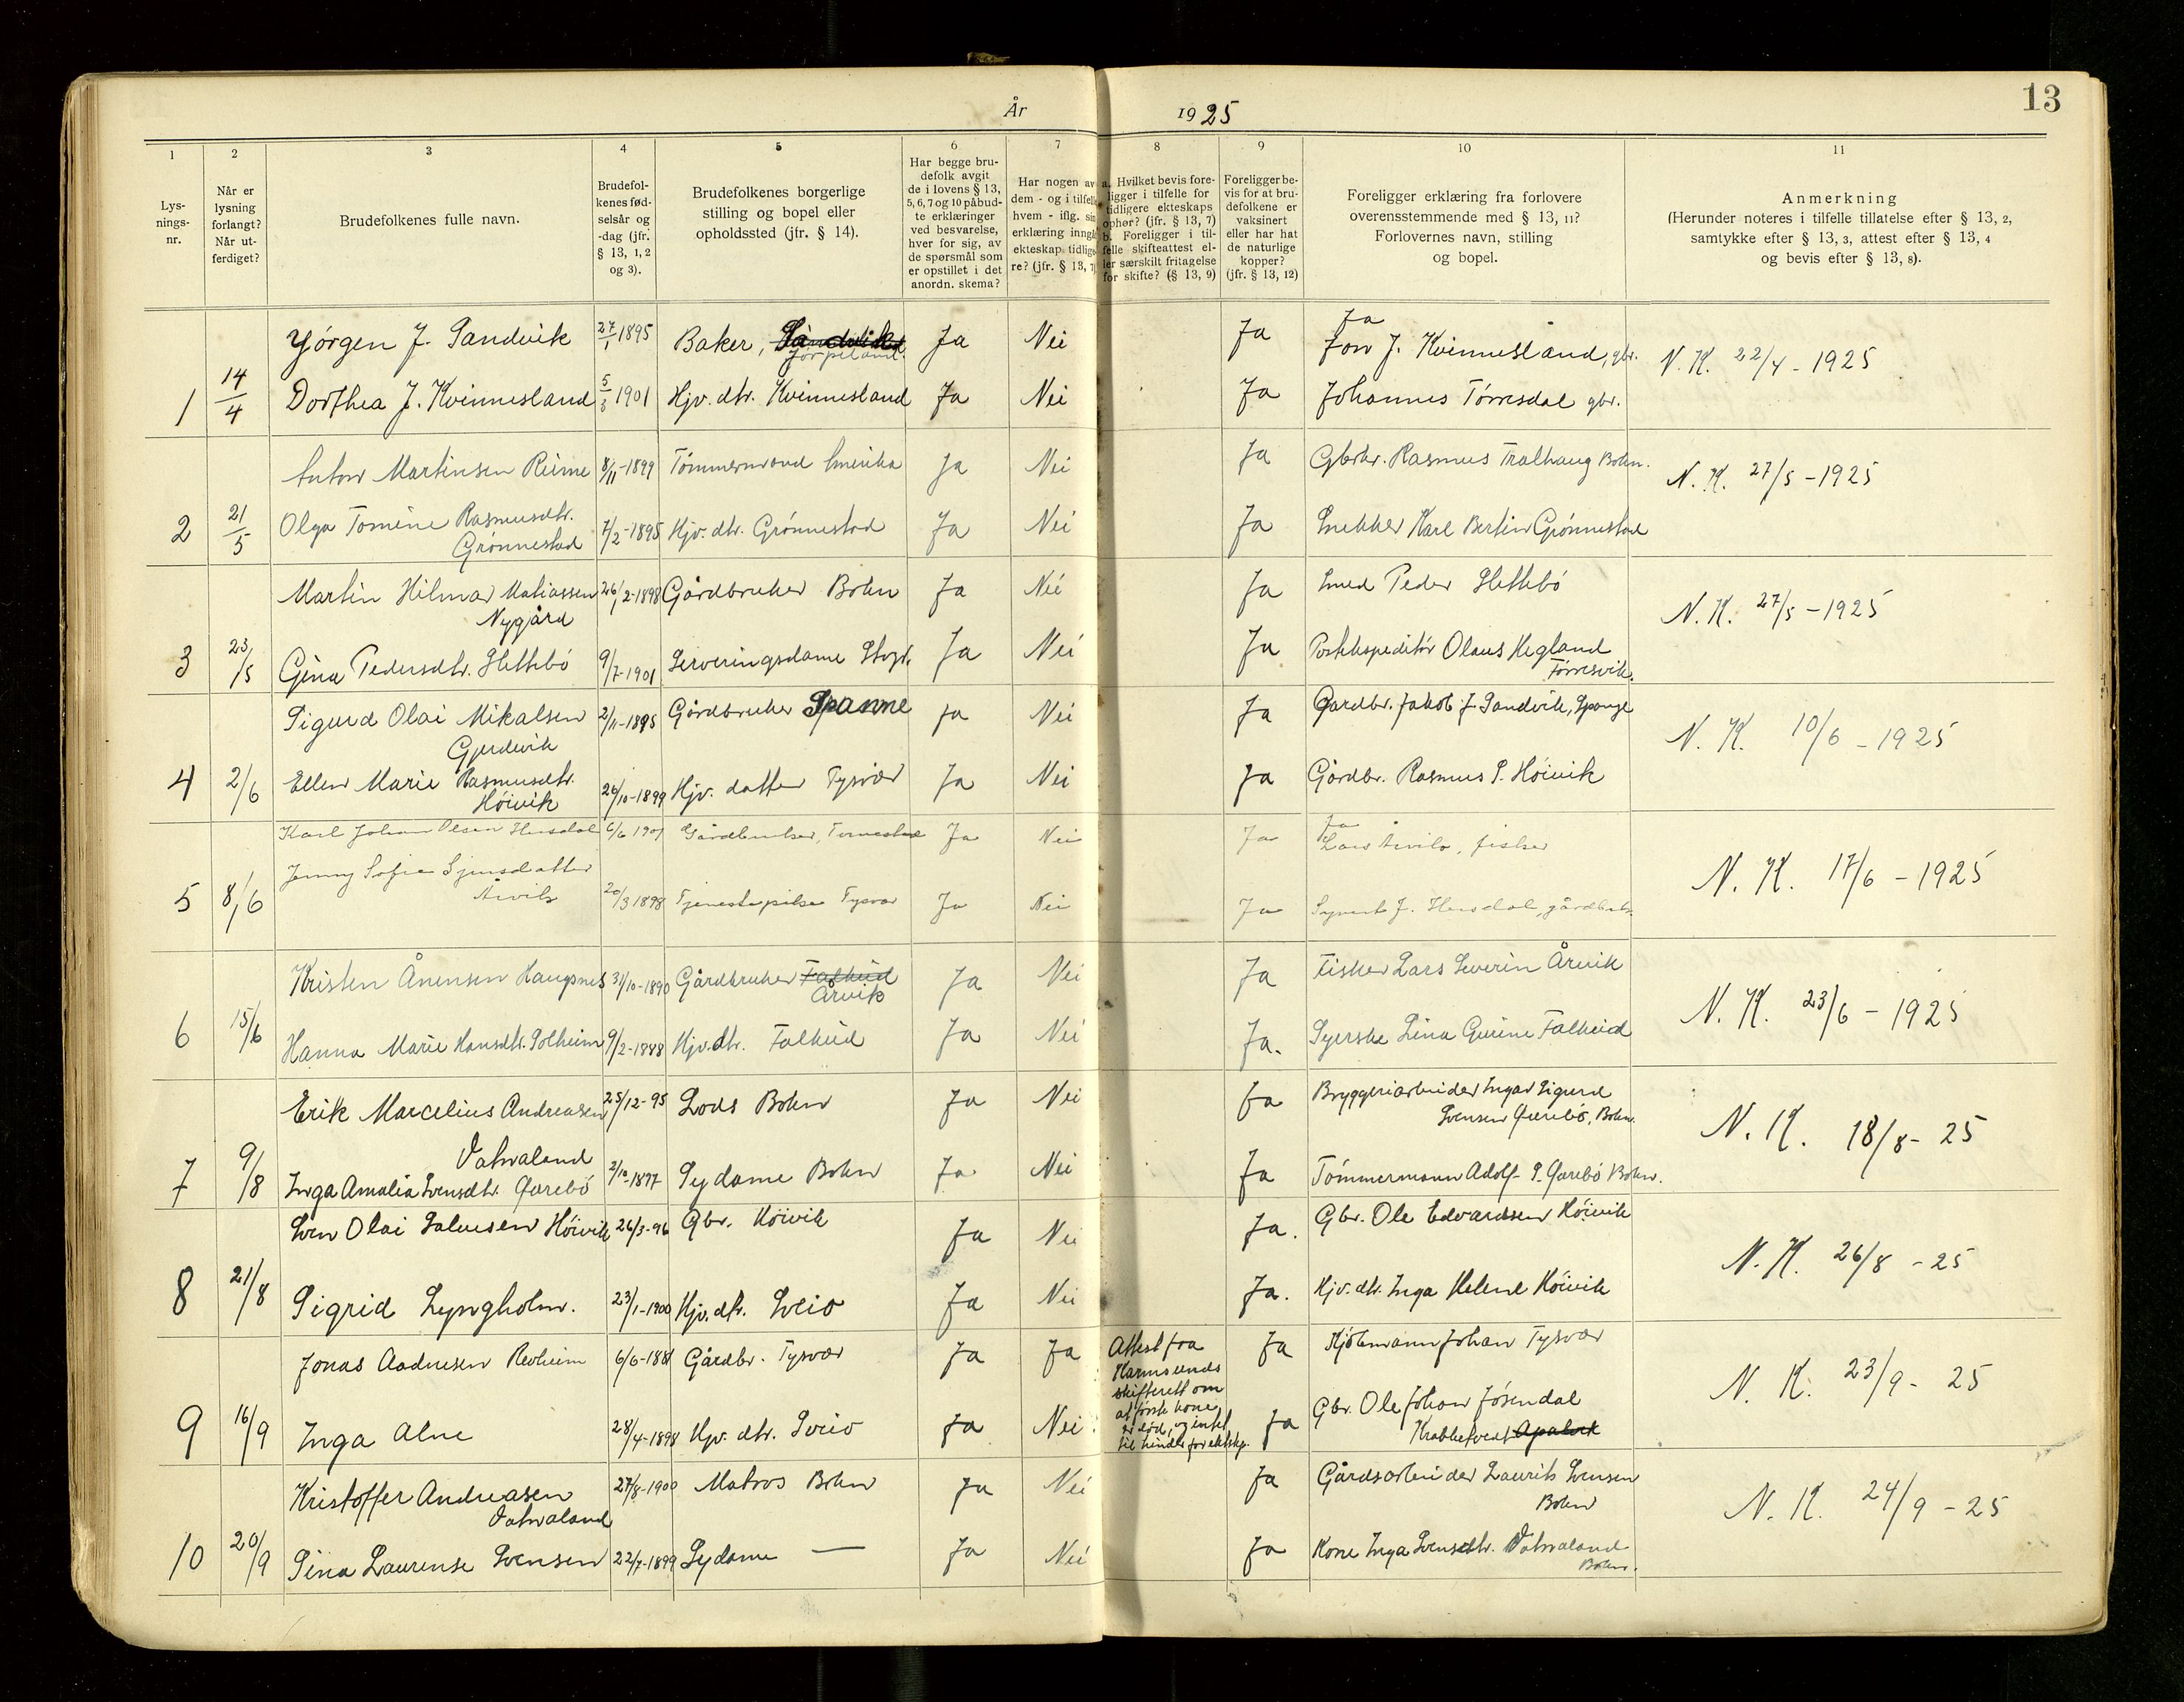 13
År 1925
1 2 3 4 5 6 7 8 9 10 11
Lys-
nings-
nr.
Når er
lysning
forlangt?
Når ut-
ferdiget?
Brudefolkenes fulle navn.
Brudefol-
kenes fød-
selsår og
-dag (jfr.
§ 13, 1, 2
og 3).
Brudefolkenes borgerlige
stilling og bopel eller
opholdssted (jfr. § 14).
Har begge bru-
defolk avgit
de i lovens § 13,
5, 6, 7 og 10 påbud-
te erklæringer
ved besvarelse,
hver for sig, av
de spørsmål som
er opstillet i det
anordn. skema?
Har nogen av
dem - og i tilfelle
hvem - iflg. sin
erklæring inngått
ekteskap tidlige-
re? (jfr. § 13, 7)
a. Hvilket bevis fore-
ligger i tilfelle for
tidligere ekteskaps
ophør? (jfr. § 13, 7)
b. Foreligger i til-
felle skifteattest el-
ler særskilt fritagelse
for skifte? (§ 13, 9)
Foreligger be-
vis for at bru-
defolkene er
vaksinert
eller har hat
de naturlige
kopper?
(jfr. § 13, 12)
Foreligger erklæring fra forlovere
overensstemmende med § 13, 11?
Forlovernes navn, stilling
og bopel.
Anmerkning
(Herunder noteres i tilfelle tillatelse efter § 13, 2,
samtykke efter § 13, 3, attest efter § 13, 4
og bevis efter § 13, 8).
Jørgen J. Sandvik 27/1 1895 Baker, Sandvik Jørpeland Ja Nei Ja Ja Jon J. Kvinnesland, gbr. N. K. 22/4 - 1925
1 14/4 Dorthea J. Kvinnesland 5/3 1901 Hjv. dtr. Kvinnesland Ja Nei Ja Johannes Tørresdal gbr.
Anton Martinsen Reime 8/11-1899 Tømmermand Amerika Ja Nei Ja Gbrkr. Rasmus Tralhaug Bokn. N. K. 27/5 - 1925
2 21/5 Olga Tomine Rasmusdtr. Grønnestad 7/2-1895 Hjv. dtr. Grønnestad Ja Nei Ja Snekker Karl Bertin Grønnestad
Martin Hilmar Matiassen Nygård 26/2-1898 Gårdbruker Bokn Ja Nei Ja Smed Peder Slettebø N. K. 27/5 - 1925
3 23/5 Gina Pedersdtr. Slettebø 9/7-1901 Serveringsdame Ja Nei Ja Postekspeditør Olaus Hegland Førresvik.
Sigurd Olai Mikalsen Gjerdevik 2/11-1895 Gårdbruker Spanne Ja Nei Ja Gardbr. Jakob J. Sandvik, N. K. 10/6 - 1925
4 2/6 Ellen Marie Rasmusdtr. Høivik 26/10-1899 Hjv. datter Tysvær Ja Nei Ja Gårdbr. Rasmus P. Høivik
Karl Johan Olsen 6/6 1901 Gårdbruker, Ja Nei Ja Ja Lars Årvik, fisker N. K. 17/6 - 1925
5 8/6 Jenny Sofie Årvik 20/3 1898 Tjenestepike Tysvær Ja Nei Ja gårdbr.
Kristen Ånensen Haugsnes 31/10-1890 Gårdbruker Falkeid Årvik Ja Nei Ja Fisker Lars Severin Årvik N. K. 23/6 - 1925
6 15/6 Hanna Marie Hansdtr. Solheim 9/2-1888 Hjv. dtr. Falkeid Ja Nei Ja. Syerske Lina Gurine Falkeid
Erik Marcelius Andreasen Vatnaland 25/12-95 Lods Bokn Ja Nei Ja Bryggeriarbeider Ingar Sigurd Svensen Qarebø, Bokn. N. K. 18/8 - 25
7 9/8 Inga Amalia Svensdtr. Qarebø 2/10-1897 Sydame Bokn Ja Nei Ja Tømmermann Adolf S. Qarebø Bokn.
Sven Olai Salvesen Høivik 26/3-96 Gbr. Høivik Ja Nei Ja. Gbr. Ole Edvardsen Høivik N. K. 26/8 - 25
8 21/8 Sigrid Lyngholm. 23/1-1900 Hjv. dtr. Sveio Ja Nei Ja. Hjv. dtr. Inga Helene Høivik
Jonas Aadnesen Revheim 6/6-1881 Gårdbr. Tysvær Ja Ja Attest fra Karmsunds skifterett om at første kone er død, og intet til hinder for ekteskp. Ja Kjøbmann Johan Tysvær N. K. 23/9 - 25
9 16/9 Inga Alne 28/4-1898 Hjv. dtr. Sveio Ja Nei Ja Gbr. Ole Johan Jøsendal Krabbetveit Apalvik
Kristoffer Andreasen Vatnaland 27/8-1900 Matros Bokn Ja Nei Ja Gårdsarbeider Laurits Svensen Bokn N. K. 24/9 - 25
10 20/9 Sina Laurense Svensen 22/7-1899 Sydame — Ja Nei Ja Kone Inga Svensdtr. Vatnaland Bokn.